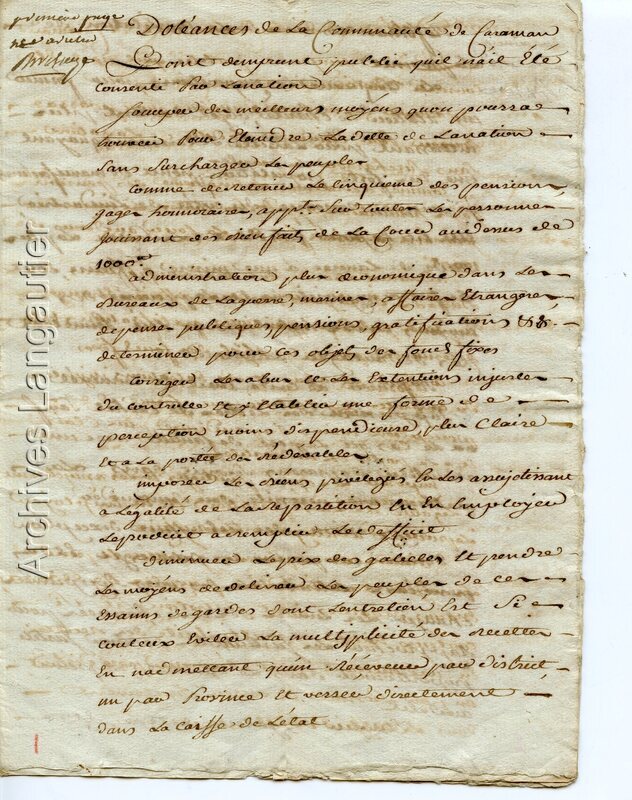 premiere page
ne varietur
Doléances de La Communauté de Caraman
Point demprunt publie quil nait Eté
consenti Par Lanation
soccuper des meilleurs moyens quon pourra
trouver Pour Eteindre La dette de Lanation
sans surcharger Les peuples
comme de Retenir Le cinquieme des pensions,
gages honoraires, appts. sur toutes Les personnes
jouissant des bienfaits de La Cour audessus de
1000
administration plus œconomique dans Les
Bureaux de Laguerre, marine, affaires Etrangeres
depenses publiques, pensions, gratifications &&.
determiner pour ces objets des fonds fixes
corriger Les abus et Les Extentions injustes
du controlle Et y Etablir une forme de
perception moins dispendieuse, plus Claire
Et a La portée des Redevables
imposer Les biens privilegiés En Les assujetissant
a Legalité de La Repartition En En Employer
Leproduit a remplir Le defficit
diminuer Leprix des gabelles Et prendre
Les moyens de delivrer Les peuples de ces
Essains de gardes dont Lentretien Est si
couteux Eviter La multiplicité des Recettes
En nadmettant quun Réceveur par district
un par Province Et verser directement
dans La caisse de Létat
Archives Langautier